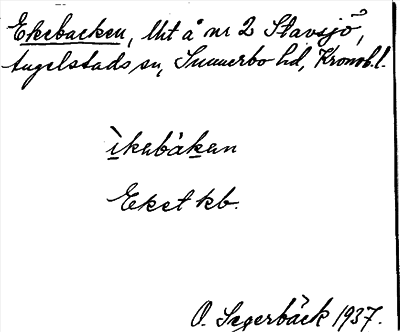 Ekebacken, lht å nr 2 Stavsjö,
Angelstads sn, Sunnerbo hd, Kronob. l.
ìkabàkan
Eket kb.
O. Segerbäck 1937.